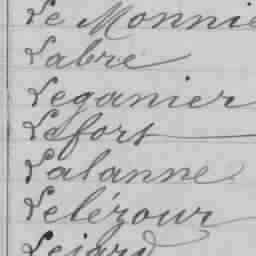 Le Monnie
Labré
Leganier
Lefort
Lalanne
Lelézour
Lejard